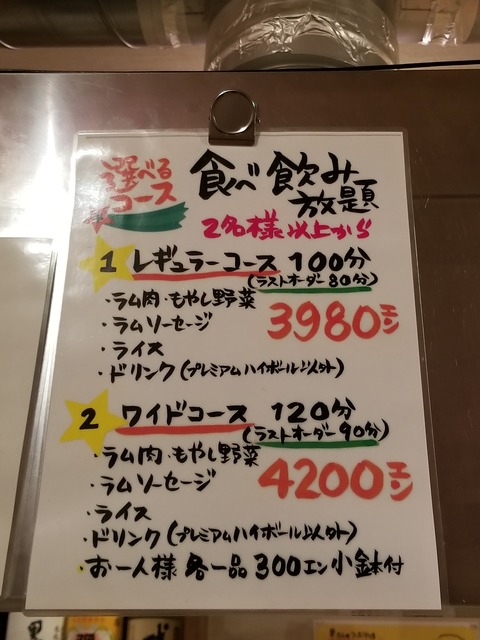 選べるコース
食べ飲み放題
2名様以上から
1 レギュラーコース 100分
(ラストオーダー80分)
・ラム肉・もやし野菜
・ラムソーセージ
・ライス
・ドリンク(プレミアムハイボール以外)
3980エン
2 ワイドコース 120分
(ラストオーダー90分)
・ラム肉・もやし野菜
・ラムソーセージ
・ライス
・ドリンク(プレミアムハイボール以外)
・お一人様各一品300エン小鉢付
4200エン